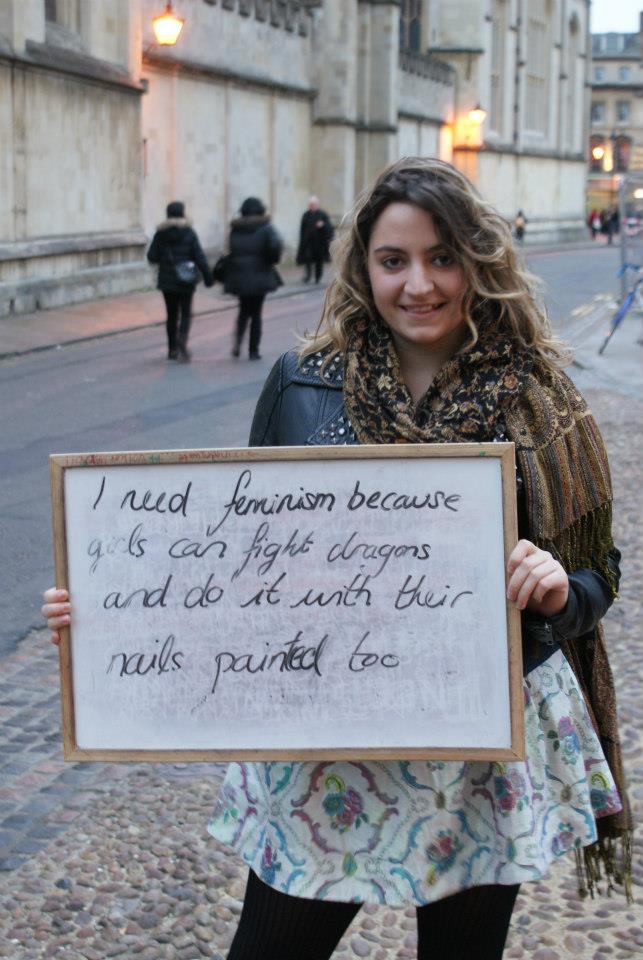 I need feminism because
girls can fight dragons
and do it with their
nails painted too